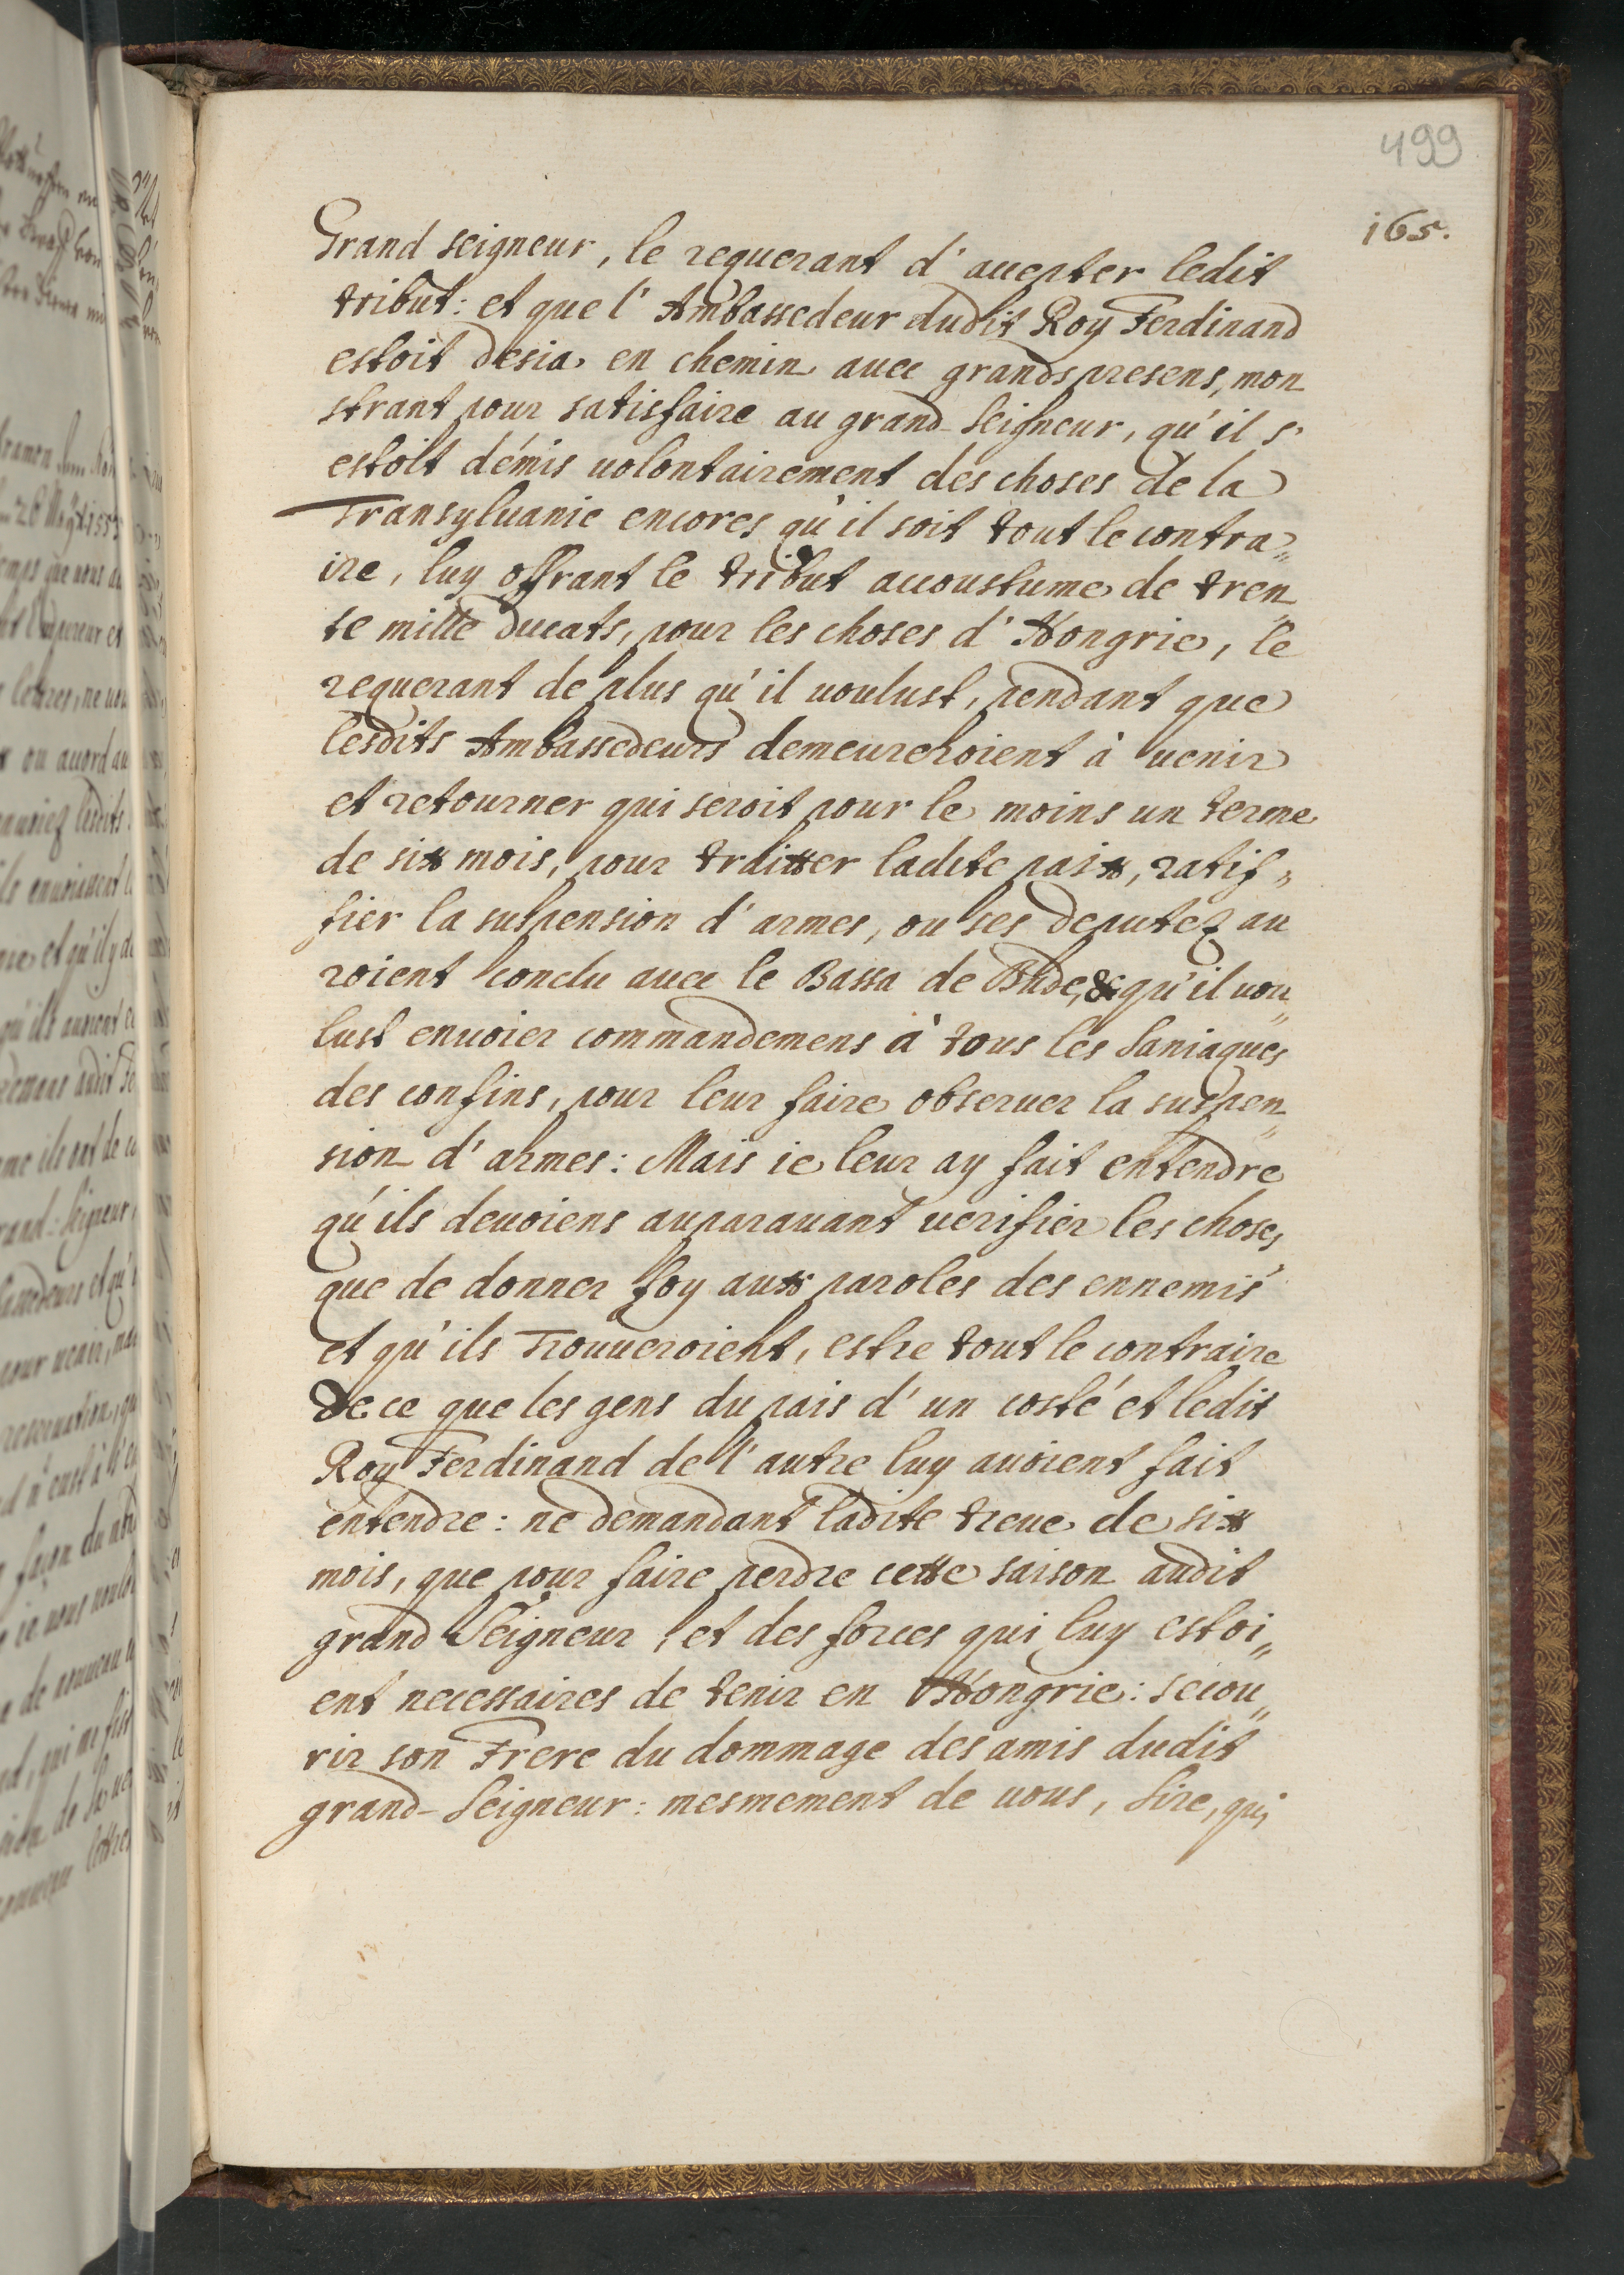 499
165.
Grand seigneur, le requerant d'accepter ledit
tribut: et que l'Ambassedeur dudit Roy Ferdinand
estoit desia en chemin avec grands presens, mon
strant pour satisfaire au grand-Seigneur, qu'il s'
estoit démis uolontairement des choses de la
Transyluanie encores qu'il soit tout le contra„
ire, luy offrant le tribut accoustume de tren„
te mille ducats, pour les choses d'Hongrie, le
requerant de plus qu'il uoulust, pendant que
lesdits Ambassedeurs demeureroient à uenir
et retourner qui seroit pour le moins un terme
de six mois, pour traitter ladite paix, ratif„
fier la suspension d'armes, ou ses deputez au
roient conclu auec le Bassa de Bude, & qu'il uou„
lust enuoier commandemens à tous les Saniaques
des confins, pour leur faire obseruer la suspen„
sion d'armes: Mais ie leur ay fait entendre
qu'ils deuoiens auparauant uerifier les choses
que de donner foy aux paroles des ennemis
et qu'ils Trouueroient, estre tout le contraire
de ce que les gens du pais d'un costé et ledit
Roy Ferdinand de l'autre luy auoient fait
entendre: ne demandant ladite treue de six
mois, que pour faire perdre cette saison audit
grand Seigneur, et des forces qui luy estoi„
ent necessaires de tenir en Hongrie: secou„
rir son Frere du dommage des amis dudit
grand-Seigneur: mesmement de uous, Sire, qui